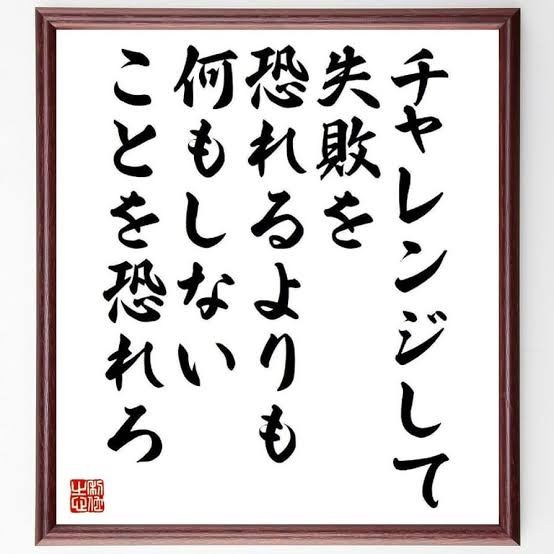 チャレンジして
失敗を
恐れるよりも
何もしない
ことを恐れろ